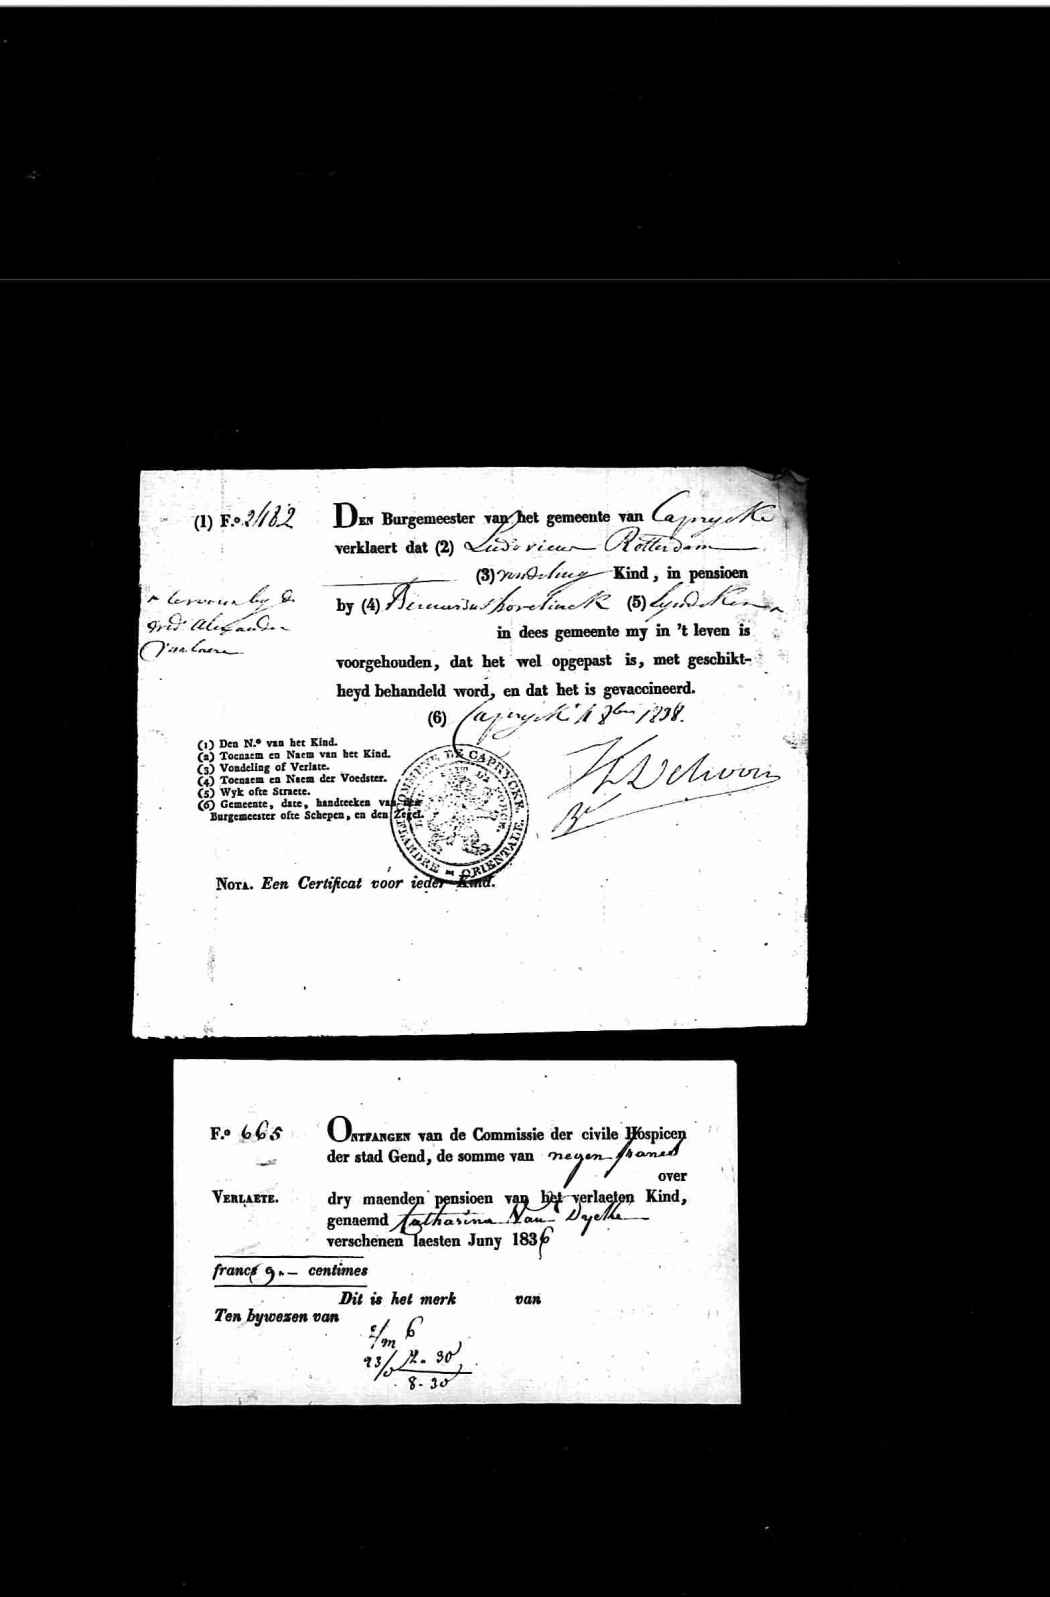 (1) F.º 2182
DEN Burgemeester van het gemeente van Caprycke
verklaert dat (2) Ludovicus Rotterdam
(3) vondeling Kind, in pensioen
by (4) (5) Lyndeken
in dees gemeente my in 't leven is
voorgehouden, dat het wel opgepast is, met geschikt-
heyd behandeld word, en dat het is gevaccineerd.
(6) Caprycke 8ber 1838.
by de
Alexander
(1) Den N.º van het Kind.
(2) Toenaem en Naem van het Kind.
(3) Vondeling of Verlate.
(4) Toenaem en Naem der Voedster.
(5) Wyk ofte Straete.
(6) Gemeente, date, handteeken van den
Burgemeester ofte Schepen, en den Zegel.
COMMUNE DE CAPRYCKE.
FLANDRE ORIENTALE.
NOTA. Een Certificat voor ieder Kind.
F.º 665
ONTFANGEN van de Commissie der civile Hospicen
der stad Gend, de somme van negen francs
over
VERLAETE.
dry maenden pensioen van het verlaeten Kind,
genaemd Catharina Van Dycke
verschenen laesten Juny 1836
francs 9.— centimes
Dit is het merk van
Ten bywezen van
6
8-30